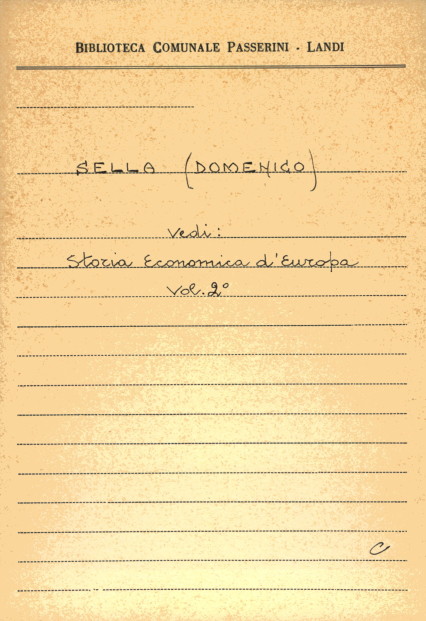 BIBLIOTECA COMUNALE PASSERINI - LANDI
SELLA (DOMENICO)
Vedi:
Storia Economica d'Europa
Vol. 2º
C